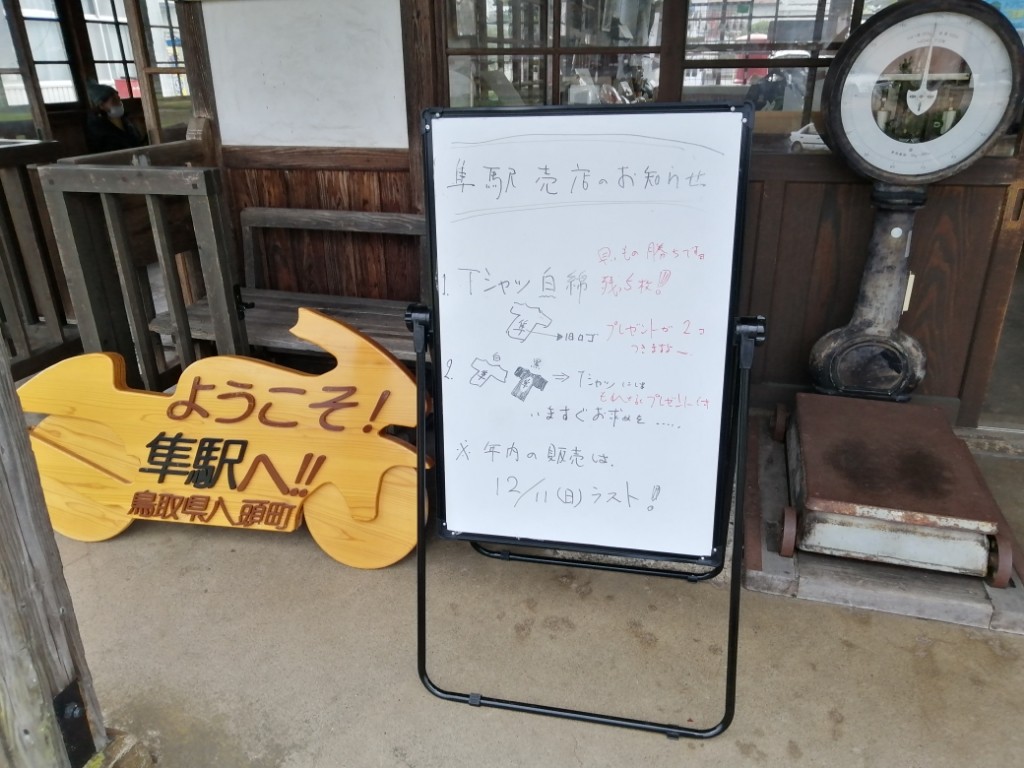 ようこそ!
隼駅へ!!
鳥取県八頭町
隼駅売店のお知らせ
もの勝ちです
1. Tシャツ 白 綿 残り5枚!!
隼
プレゼントが2コ
つきますよ〜
2. 白 黒 ⇒ Tシャツには
プレゼント付
いますぐ .....
※年内の販売は、
12/11(日)ラスト!